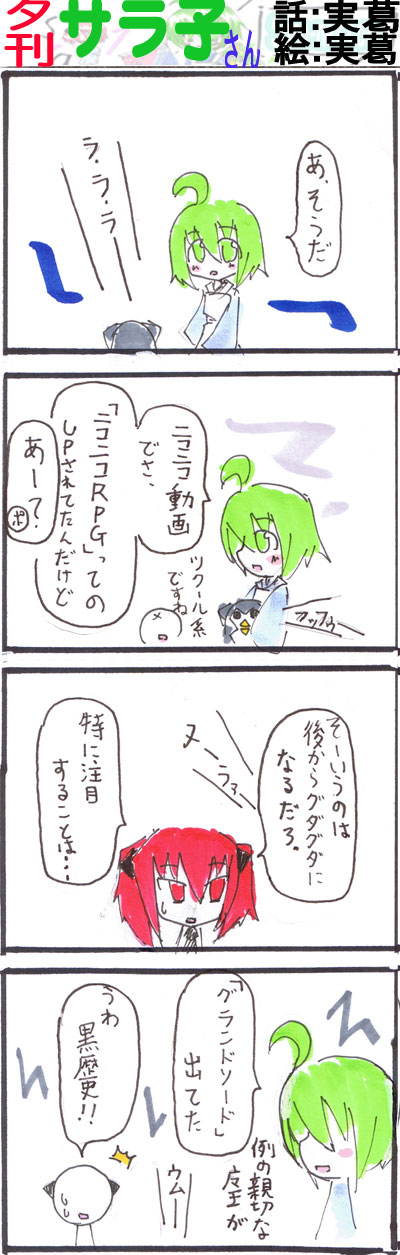 夕刊
サラ子
さん
話:実葛
絵:実葛
あ、そうだ
ラ・ラ・ラ
ニコニコ動画
でさ、
「ニコニコRPG」っての
UPされてたんだけど
あー?
ポ
ツクール系
ですね
そーいうのは
後からグダグダに
なるだろ。
ヌーラァ
特に注目
することは…
「グランドソード」
出てた
例の親切な
皇王が
うわ
黒歴史!!
ウムー